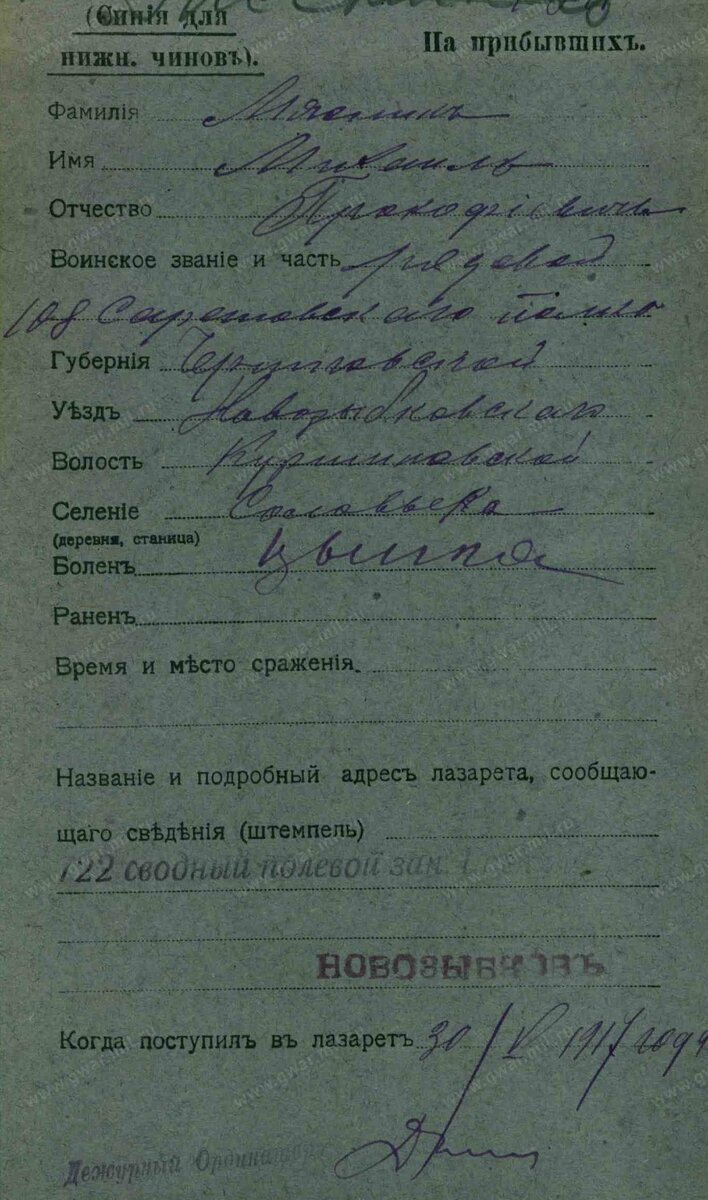 (Синія для
нижн. чиновъ).
На прибывшихъ.
Фамилія
Имя Михаилъ
Отчество Прокофіевичъ
Воинское званіе и часть рядовой
108 Саратовскаго полка
Губернія Черниговской
Уѣздъ Новозыбковскаго
Волость
Селеніе Соловьевка
(деревня, станица)
Боленъ цынга
Раненъ
Время и мѣсто сраженія.
Названіе и подробный адресъ лазарета, сообщаю-
щаго свѣдѣнія (штемпель)
722 сводный полевой зап.
НОВОЗЫБКОВЪ
Когда поступилъ въ лазаретъ 30/V 1917 года
Дежурный Ординаторъ